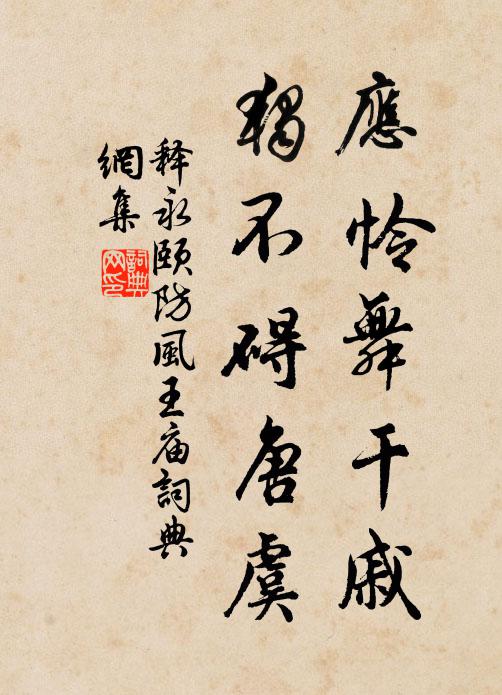 應怜舞干戚
独不碍唐虞
释永頤防風王庙詞典
網集
詞典
网印